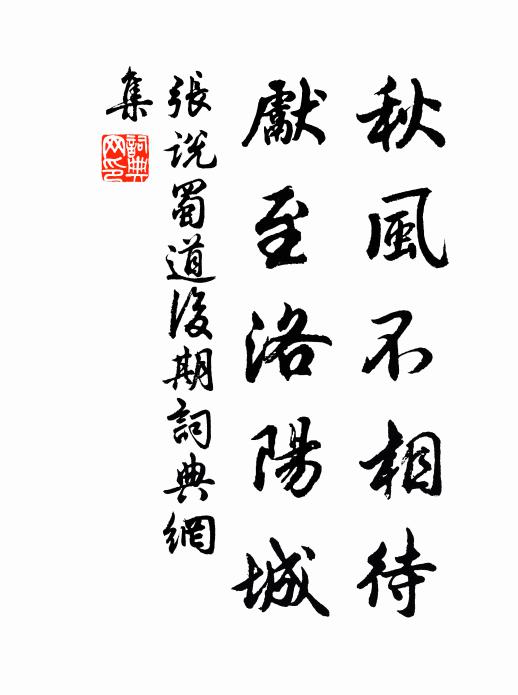 秋風不相待
獻至洛陽城
張説蜀道後期詞典網
集
詞典
网印